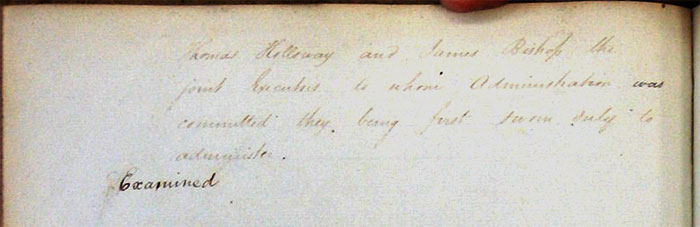 Thomas Holloway and James Bishop the
joint Executors to whom Administration was
committed they being first sworn duly to
administer.
Examined